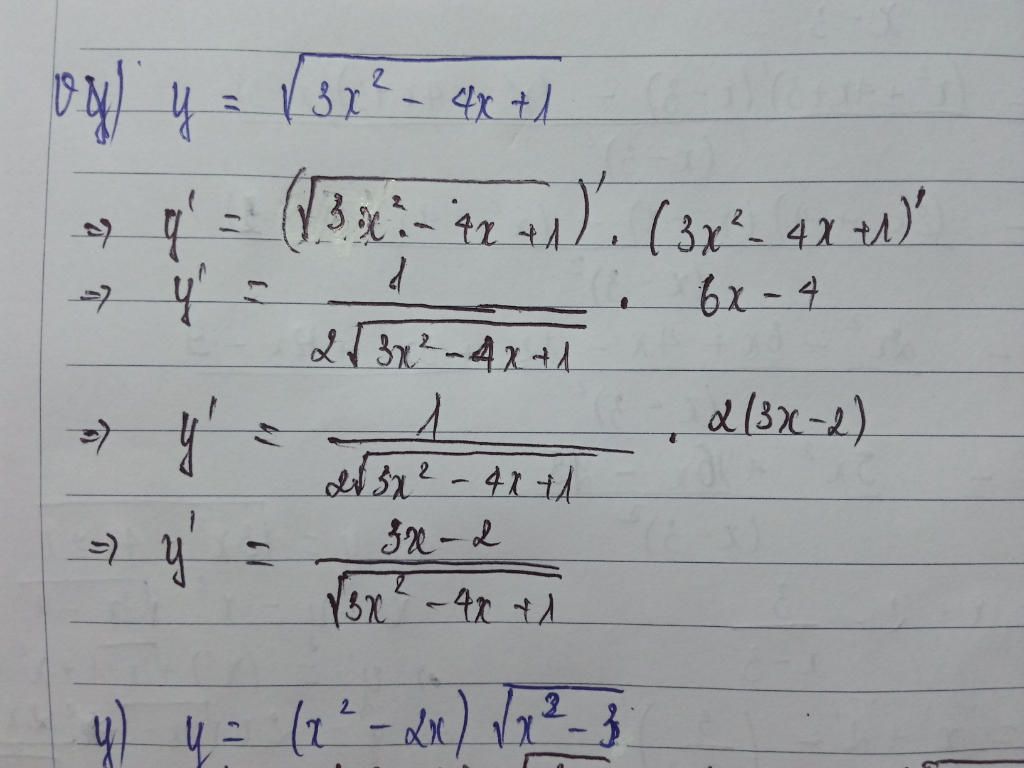 y = √(3x² - 4x + 1)
=> y' = (√(3x² - 4x + 1))' . (3x² - 4x + 1)'
=> y' = 1 / (2√(3x² - 4x + 1)) . 6x - 4
=> y' = 1 / (2√(3x² - 4x + 1)) . 2(3x - 2)
=> y' = (3x - 2) / √(3x² - 4x + 1)
y) y = (x² - 2x) √(x² - 3)